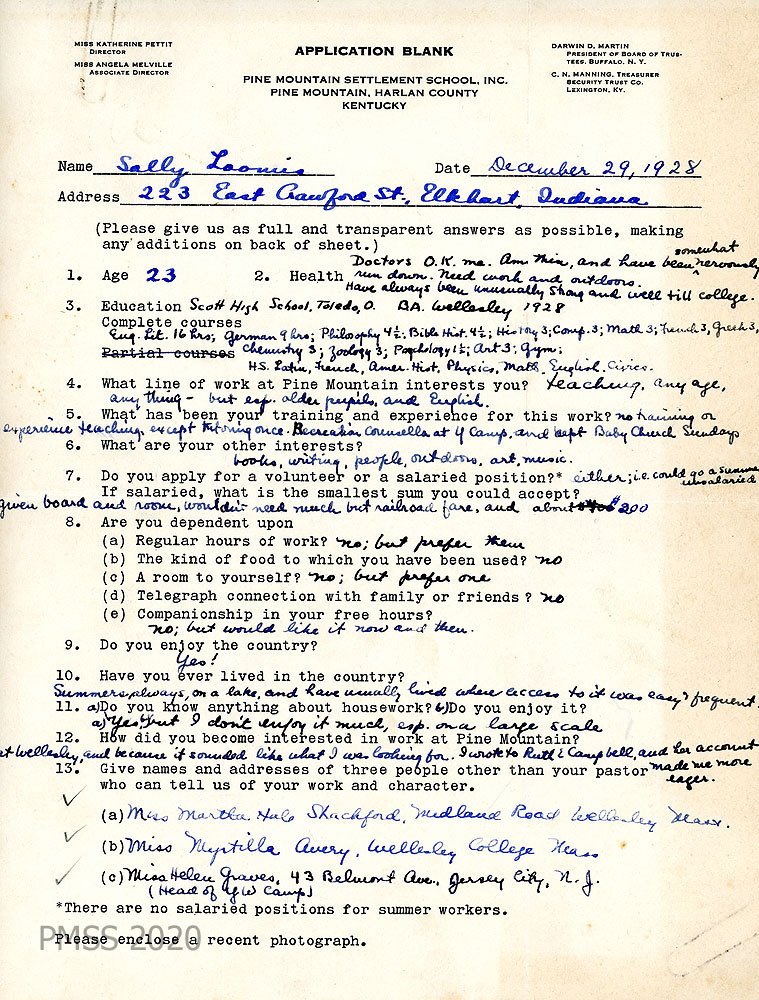 MISS KATHERINE PETTIT
DIRECTOR
MISS ANGELA MELVILLE
ASSOCIATE DIRECTOR
APPLICATION BLANK
PINE MOUNTAIN SETTLEMENT SCHOOL, INC.
PINE MOUNTAIN, HARLAN COUNTY
KENTUCKY
DARWIN D. MARTIN
PRESIDENT OF BOARD OF TRUS-
TEES, BUFFALO, N. Y.
C. N. MANNING, TREASURER
SECURITY TRUST CO.
LEXINGTON, KY.
Name Sally Loomis Date December 29, 1928
Address 223 East Crawford St., Elkhart, Indiana
(Please give us as full and transparent answers as possible, making
any additions on back of sheet.)
Doctors O.K. me. Am thin, and have been somewhat nervously
1. Age 23 2. Health run down. Need work and outdoors.
Have always been unusually strong and well till college.
3. Education Scott High School, Toledo, O. B.A. Wellesley 1928
Complete courses
Eng. Lit. 16 hrs; German 9 hrs; Philosophy 4½; Bibl. Hist. 4½; History 3; Comp. 3; Math 3; French 3, Greek 3,
Partial courses Chemistry 3; Zoology 3; Psychology 1½; Art 3; Gym;
H.S. Latin, French, Amer. Hist. Physics, Math, English, Civics.
4. What line of work at Pine Mountain interests you? teaching, any age,
any thing - but esp. older pupils, and English.
5. What has been your training and experience for this work? no training or
experience teaching, except tutoring once. Recreation Counsellor at Y Camp, and kept Baby Church Sundays
6. What are your other interests?
books, writing, people, outdoors, art, music.
7. Do you apply for a volunteer or a salaried position?* either; i.e. could go a summer unsalaried
If salaried, what is the smallest sum you could accept?
given board and room, wouldn't need much but railroad fare, and about $200
8. Are you dependent upon
(a) Regular hours of work? no; but prefer them
(b) The kind of food to which you have been used? no
(c) A room to yourself? no; but prefer one
(d) Telegraph connection with family or friends? no
(e) Companionship in your free hours?
no; but would like it now and then.
9. Do you enjoy the country?
Yes!
10. Have you ever lived in the country?
Summers, always, on a lake, and have usually lived where access to it was easy & frequent.
11. a) Do you know anything about housework? b) Do you enjoy it?
a) Yes, but I don't enjoy it much, esp. on a large scale
12. How did you become interested in work at Pine Mountain?
at Wellesley, and because it sounded like what I was looking for. I wrote to Ruth Campbell, and her account
made me more eager.
13. Give names and addresses of three people other than your pastor
who can tell us of your work and character.
(a) Miss Martha Hale Shackford, Midland Road Wellesley Mass.
(b) Miss Myrtilla Avery, Wellesley College Mass
(c) Miss Helen Graves, 43 Belmont Ave., Jersey City, N. J.
(Head of YW Camp)
*There are no salaried positions for summer workers.
Please enclose a recent photograph.
PMSS 2020